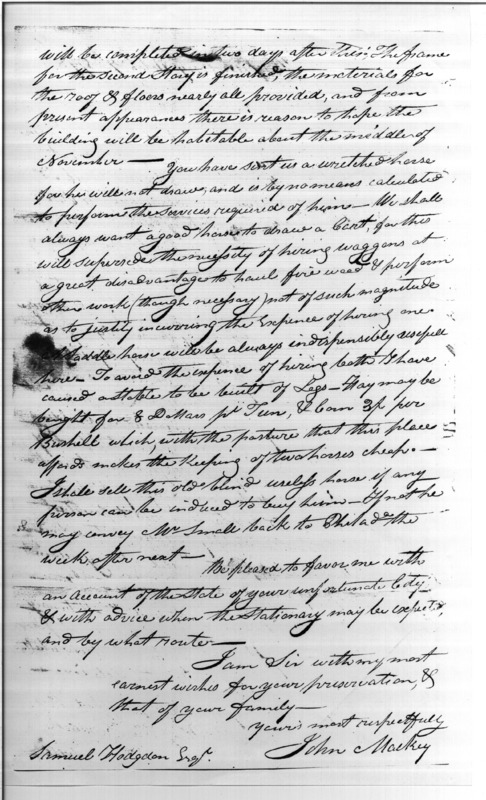 will be completed in two days after this. The frame
for the second Story is finished, the materials for
the roof & floors nearly all provided, and from
present appearances there is reason to hope the
building will be habitable about the middle of
November —
You have sent us a wretched horse
for he will not draw, and is by no means calculated
to perform the services required of him — We shall
always want a good horse to draw a Cart, for this
will supersede the necessity of hiring waggons at
a great disadvantage to haul fire wood & perform
other work (though necessary) not of such magnitude
as to justify incurring the Expence of hiring one
A saddle horse will be always indispensibly usefull
here — To avoid the expence of hiring both I have
caused a stable to be built of Logs — Hay may be
bought for 8 Dollars pr Tun, & Corn 3/ per
Bushell which, with the pasture that this place
affords makes the keeping of two horses cheap. —
I shall sell this old blind useless horse if any
person can be induced to buy him — If not he
may convey Mr Small back to Philada the
week after next —
Be pleased to favor me with
an account of the State of your unfortunate City
& with advice when the Stationary may be expectd,
and by what route —
I am Sir with my most
earnest wishes for your preservation, &
that of your family —
yours most respectfully
John Mackey
Samuel Hodgdon Esqr.